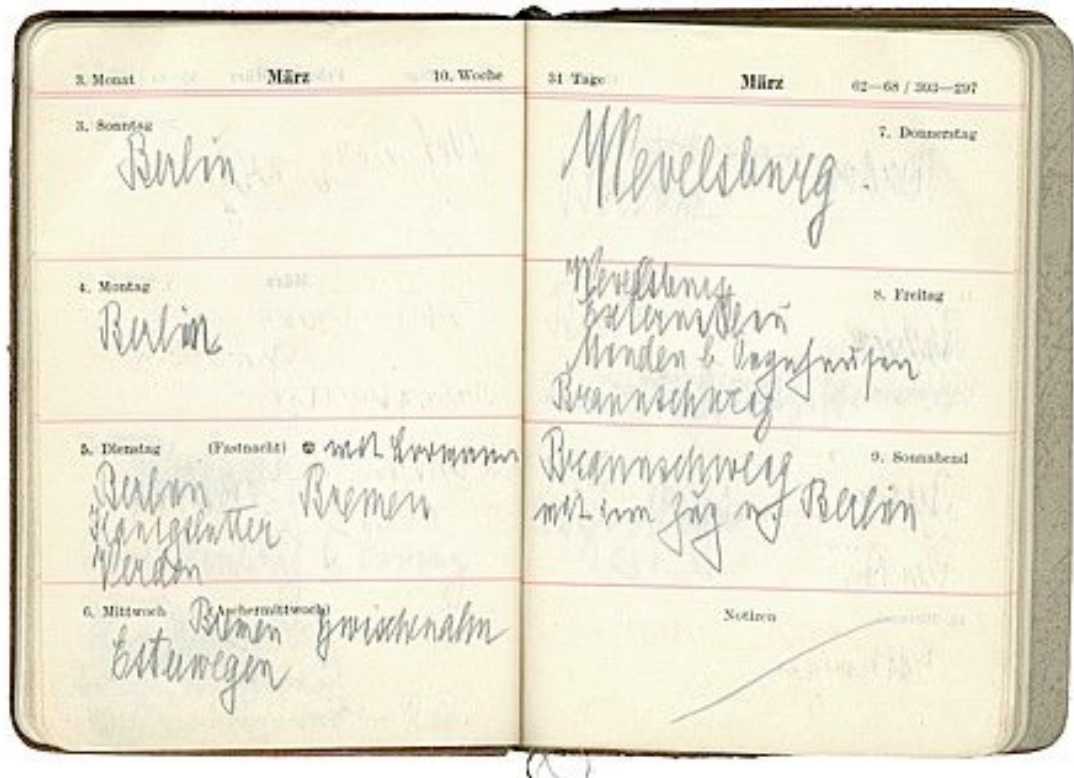 3. Monat März 10. Woche
3. Sonntag
Berlin
4. Montag
Berlin
5. Dienstag (Fastnacht) mit
Berlin Bremen
Königslutter
Verden
6. Mittwoch (Aschermittwoch)
Bremen Zwischenahn
Esterwegen
31 Tage März 62—68 / 303—297
7. Donnerstag
Wevelsburg
8. Freitag
Wevelsburg
Externstein
Minden b.
Braunschweig
9. Sonnabend
Braunschweig
mit dem Zug n. Berlin
Notizen